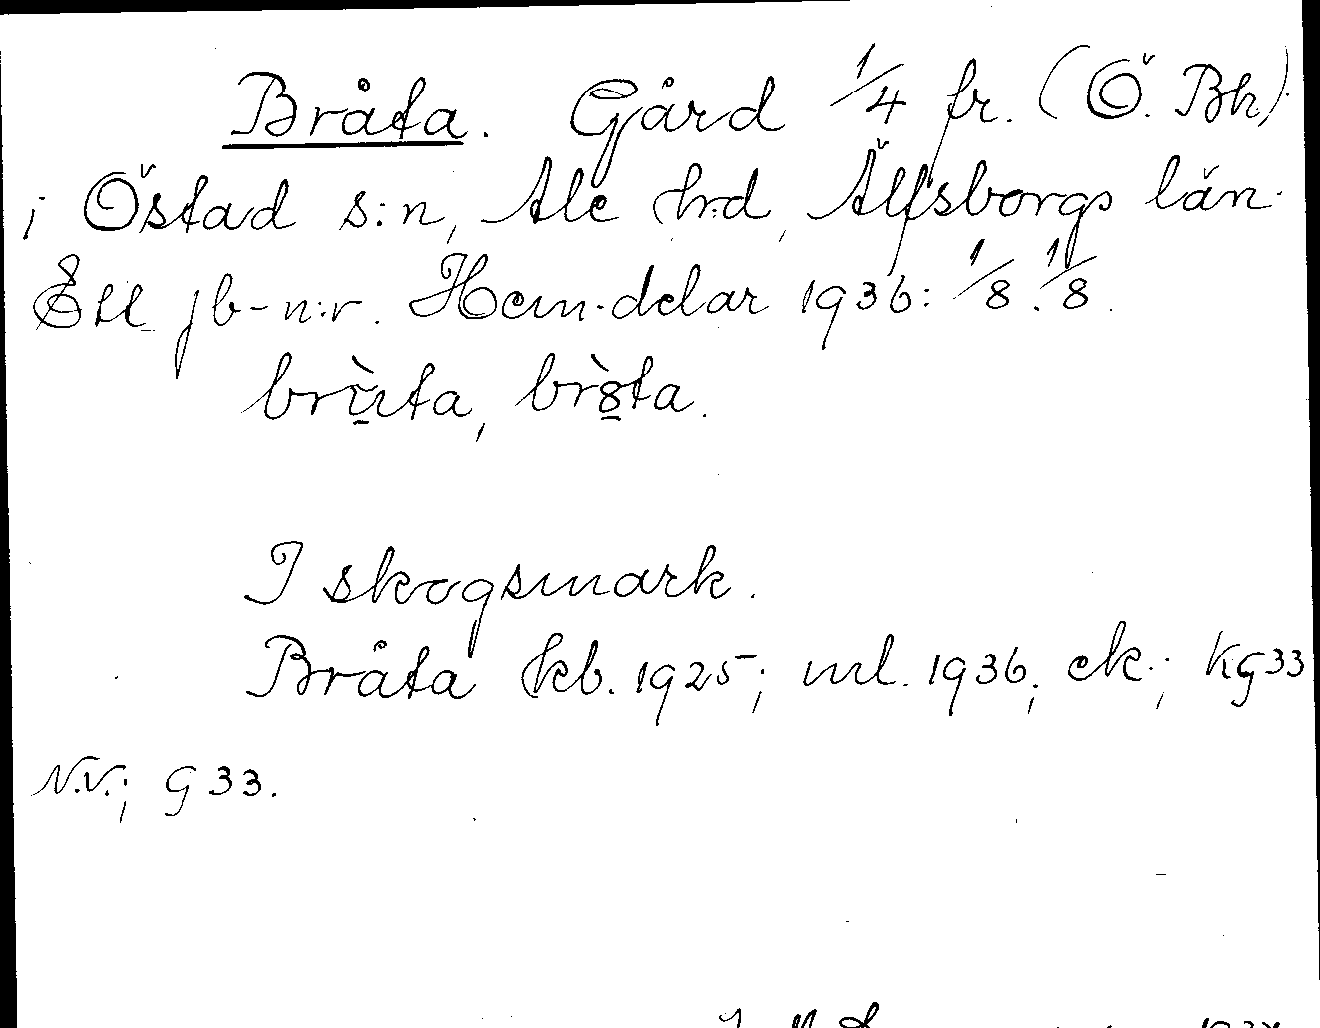 Bråta. Gård 1/4 fr. (Ö. Bh)
i Östad s:n, Ale h:d, Älfsborgs län.
Ett jb-n:r. Hem.delar 1936: 1/8. 1/8.
brùta, bròta.
I skogsmark.
Bråta kb. 1925; ml. 1936; ek.; KG33
N.V.; G33.